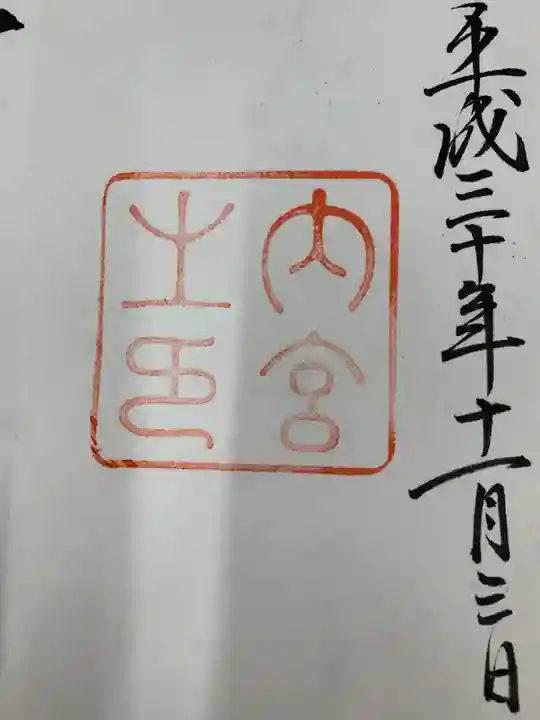 平成三十年十一月三日
内宮
之印